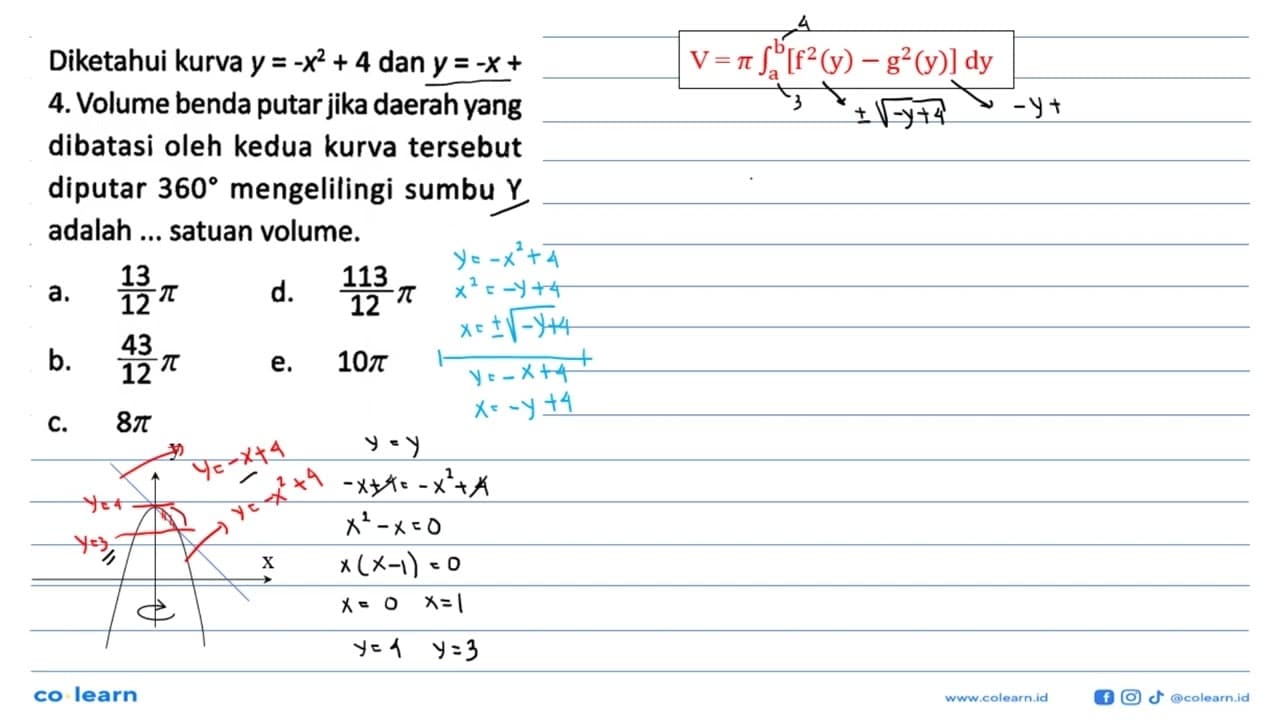 Diketahui kurva y = -x² + 4 dan y = -x +
4. Volume benda putar jika daerah yang
dibatasi oleh kedua kurva tersebut
diputar 360° mengelilingi sumbu Y
adalah ... satuan volume.
a. 13/12 π
b. 43/12 π
c. 8π
d. 113/12 π
e. 10π
4
V = π ∫ₐᵇ [f²(y) – g²(y)] dy
3
±√-y+4
-y+
y = -x² + 4
x² = -y+4
x = ±√-y+4
y = -x+4
x = -y+4
y = y
-x+4 = -x²+4
x² - x = 0
x(x-1) = 0
x = 0 x=1
y = 4 y = 3
y
y = -x+4
y = -x²+4
y=4
y=3
X
co learn
www.colearn.id
@colearn.id